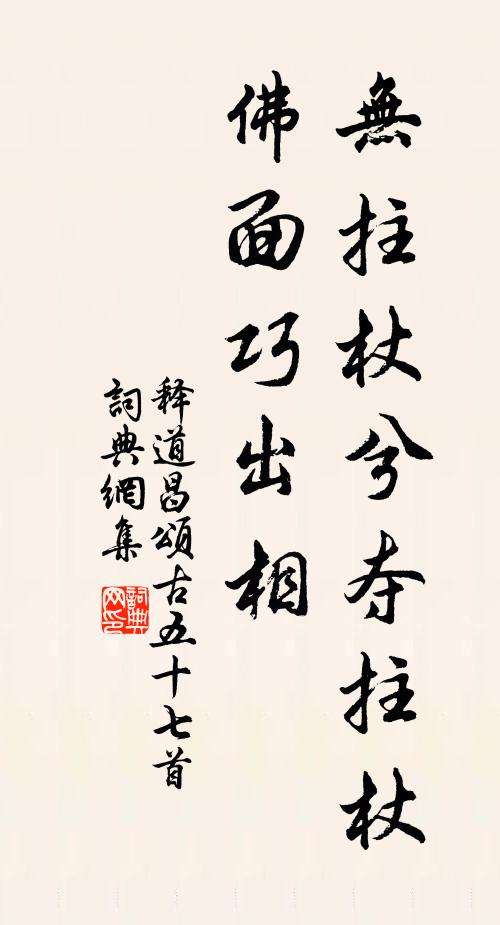 無拄杖兮夺拄杖
佛面巧出相
释道昌頌古五十七首
詞典網集
詞典网印